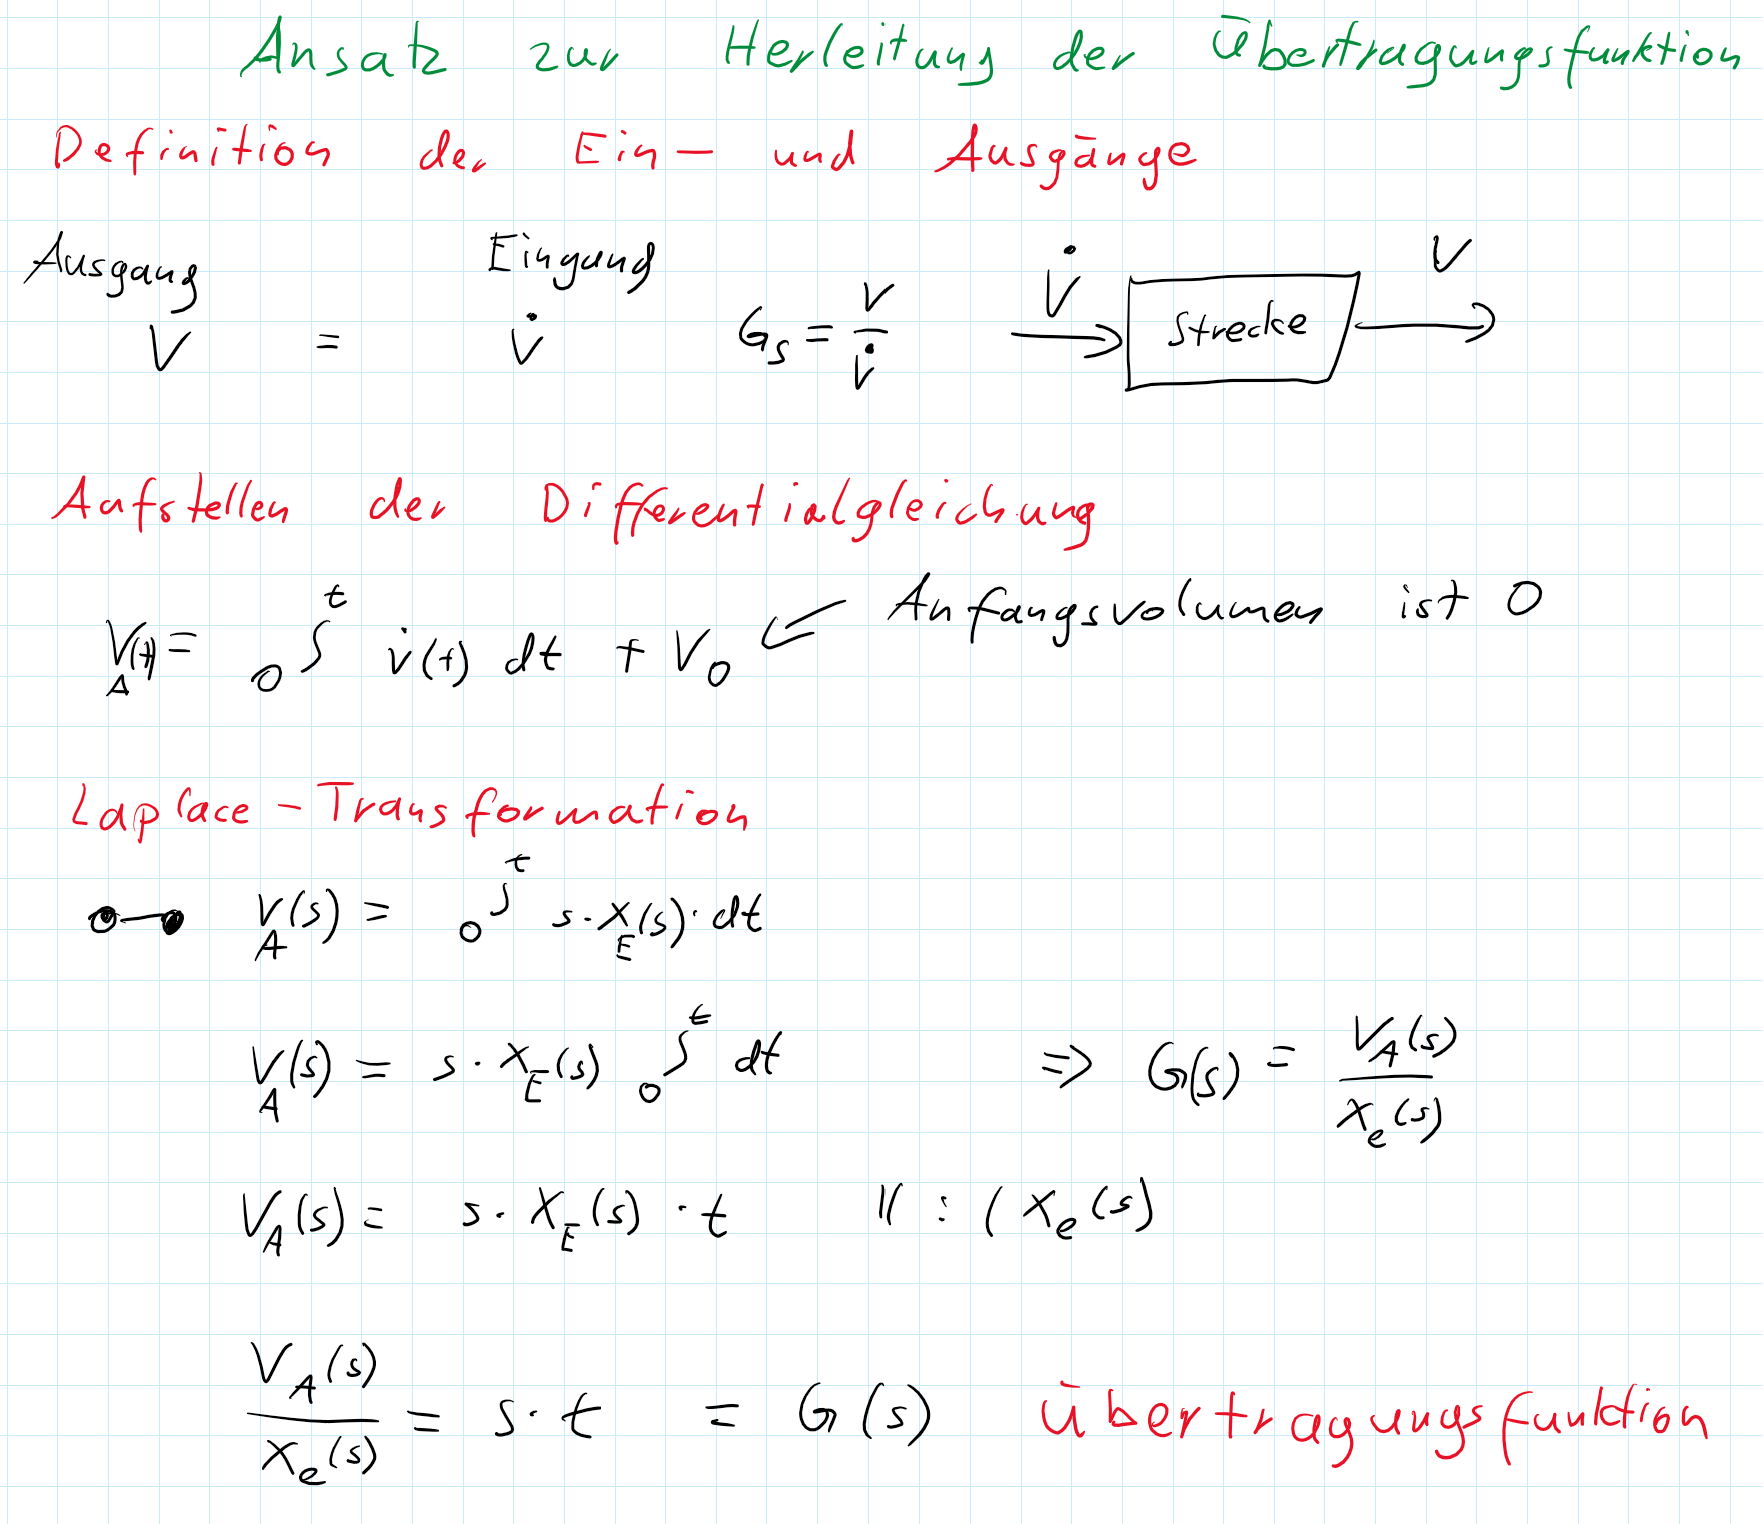 Ansatz zur Herleitung der Übertragungsfunktion
Definition der Ein- und Ausgänge
Ausgang Eingang
V = V̇ G_S = V/V̇ V̇ Strecke V
Aufstellen der Differentialgleichung
V_A(t) = ₀∫ᵗ V̇(t) dt + V₀ ⇐ Anfangsvolumen ist 0
Laplace-Transformation
V_A(s) = ₀∫ᵗ s · X_E(s) · dt
V_A(s) = s · X_E(s) ₀∫ᵗ dt => G(s) = V_A(s)/X_e(s)
V_A(s) = s · X_E(s) · t || : (X_e(s)
V_A(s)/X_e(s) = s · t = G(s) Übertragungsfunktion